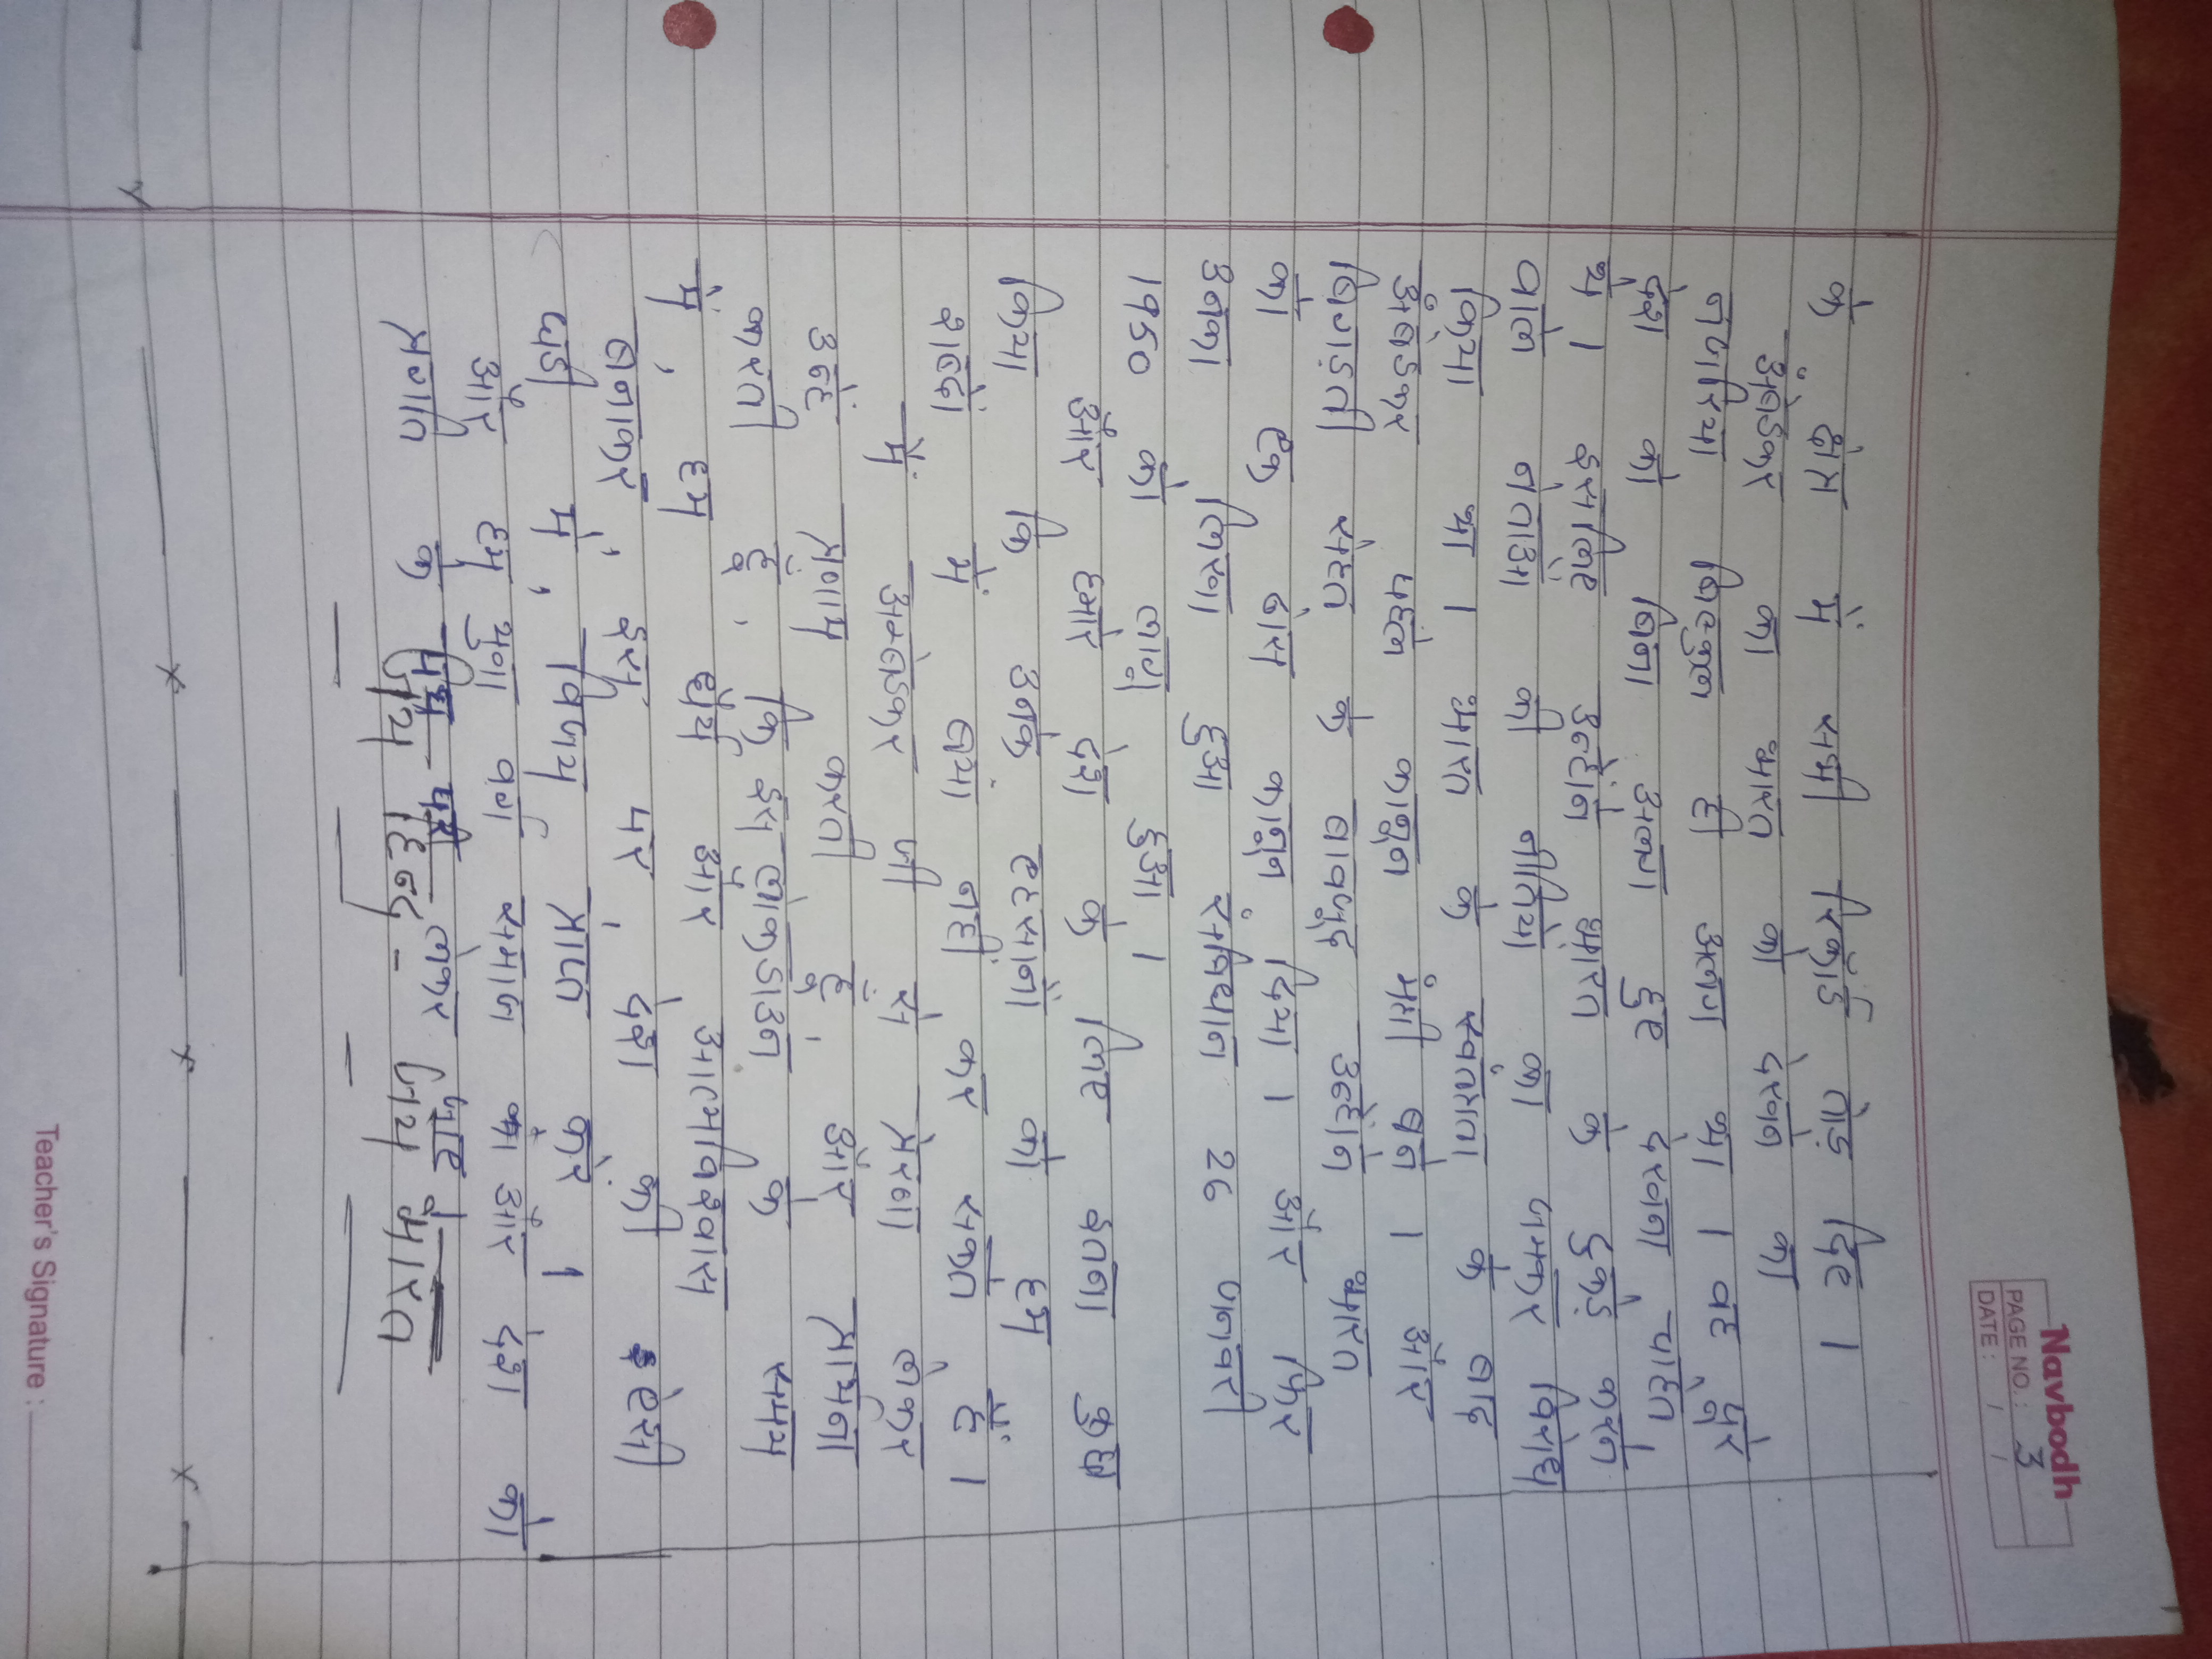 Navbodh
PAGE NO.: 3
DATE: / /
के क्षेत्र में सभी रिकॉर्ड तोड़ दिए ।
अंबेडकर का भारत को देखने का
नजरिया बिल्कुल ही अलग था । वह पूरे
देश को बिना अलग हुए देखना चाहते
थे । इसलिए उन्होंने भारत के टुकड़े करने
वाले नेताओ की नीतियो का जमकर विरोध
किया था । भारत के स्वतंत्रता के बाद
अंबेडकर पहले कानून मंत्री बने । और
बिगड़ती सेहत के बावजूद उन्होंने भारत
को एक ठोस कानून दिया । और फिर
उनका लिखा हुआ संविधान 26 जनवरी
1950 को लागू हुआ ।
और हमारे देश के लिए इतना कुछ
किया कि उनके एहसानो को हम
शब्दों में बया नहीं कर सकते हैं ।
में अम्बेडकर जी से प्रेरणा लेकर
उन्हें प्रणाम करती हूँ, और कामना
करती हूँ, कि इस लोकडाउन के समय
में, हम धैर्य और आत्मविश्वास
बनाकर, इस पर, देश की ऐसी
घड़ी में, विजय प्राप्त करे ।
और हम युवा वर्ग समाज का और देश को
प्रगति के पथ पर लेकर जाए
जय हिन्द - जय भारत
Teacher's Signature :